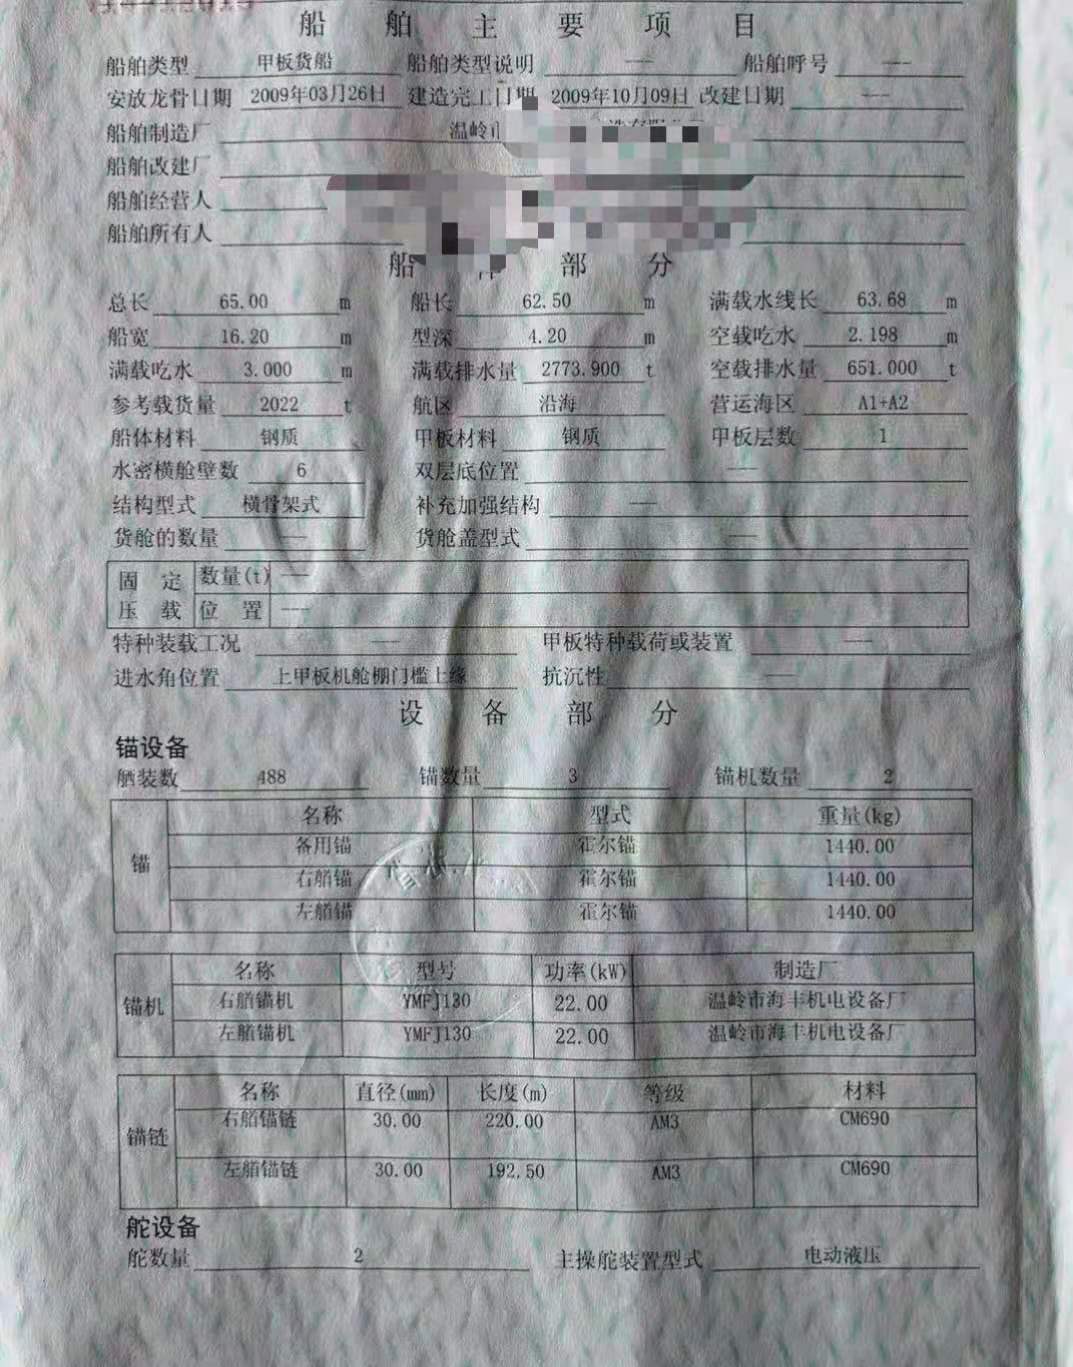 船舶主要项目
船舶类型 甲板货船 船舶类型说明 --- 船舶呼号 ---
安放龙骨日期 2009年03月26日 建造完工日期 2009年10月09日 改建日期 ---
船舶制造厂 温岭市
船舶改建厂
船舶经营人
船舶所有人
船体部分
总长 65.00 m 船长 62.50 m 满载水线长 63.68 m
船宽 16.20 m 型深 4.20 m 空载吃水 2.198 m
满载吃水 3.000 m 满载排水量 2773.900 t 空载排水量 651.000 t
参考载货量 2022 t 航区 沿海 营运海区 A1+A2
船体材料 钢质 甲板材料 钢质 甲板层数 1
水密横舱壁数 6 双层底位置 ---
结构型式 横骨架式 补充加强结构 ---
货舱的数量 --- 货舱盖型式 ---
固定压载 数量(t) ---
位置 ---
特种装载工况 --- 甲板特种载荷或装置 ---
进水角位置 上甲板机舱棚门槛上缘 抗沉性 ---
设备部分
锚设备
舾装数 488 锚数量 3 锚机数量 2
锚 名称 型式 重量(kg)
备用锚 霍尔锚 1440.00
右艏锚 霍尔锚 1440.00
左艏锚 霍尔锚 1440.00
锚机 名称 型号 功率(kW) 制造厂
右艏锚机 YMFJ130 22.00 温岭市海丰机电设备厂
左艏锚机 YMFJ130 22.00 温岭市海丰机电设备厂
锚链 名称 直径(mm) 长度(m) 等级 材料
右艏锚链 30.00 220.00 AM3 CM690
左艏锚链 30.00 192.50 AM3 CM690
舵设备
舵数量 2 主操舵装置型式 电动液压